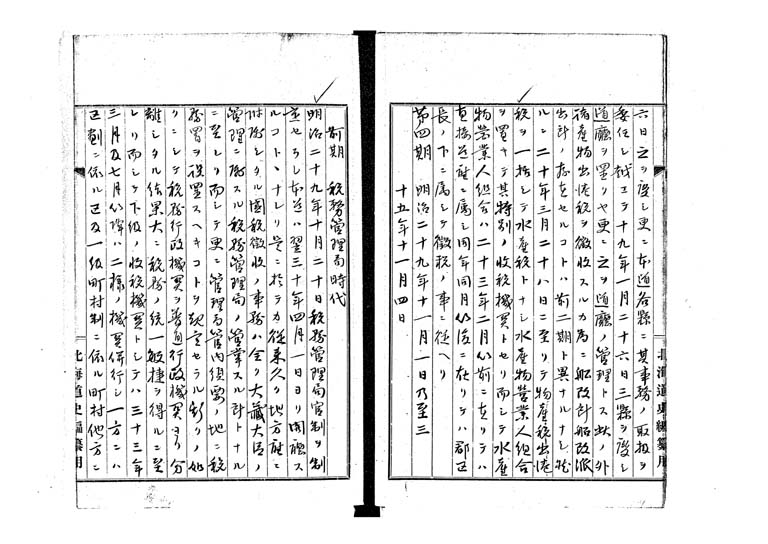 六日之ヲ廢シ更ニ本道各縣ニ其事務ノ取扱ヲ
委任シ越エテ十九年一月二十六日三縣ヲ廢シ
道廳ヲ置クヤ更ニ之ヲ道廳ノ管理トス此ノ外
諸產物出港税ヲ徴收スルカ為ニ船改所船改派
出所ノ存在セルコトハ前二期ト異ナルナシ
ルニ二十年三月二十八日ニ至リテ物產税出港
税ヲ一括シテ水產税トナシ水產物營業人組合
ヲ置キテ其特別ノ收税機關トセリ而シテ水產
物營業人組合ハ二十三年二月以前ニ在リテハ
直接道廳ニ屬シ同年同月以後ニ在リテハ郡區
長ノ下ニ屬シテ徴税ノ事ニ從ヘリ
第四期 明治二十九年十一月一日乃至三
十五年十一月四日
北海道史編纂用
前期 税務管理局時代
明治二十九年十月二十日税務管理局官制ヲ制
定セラレ本道ハ翌三十年四月一日ヨリ開廳ス
ルコトヽナレリ是ニ於テカ從來久シク地方廳ニ
附隨シタル國税徴收ノ事務ハ全ク大藏大臣ノ
管理ニ屬スル税務管理局ノ管掌スル所トナル
ニ至レリ而シテ更ニ管理局管内須要ノ地ニ税
務署ヲ設置スヘキコトヲ規定セラル斯クノ如
クニシテ税務行政機關ヲ普通行政機關ヨリ分
離シタル結果大ニ税務ノ統一敏捷ヲ得ルニ至
レリ而シテ下級ノ收税機關トシテハ三十三年
三月及七月以降ハ二様ノ機關併行シ一方ニハ
區制ニ依ル區及一級町村制ニ依ル町村他方ニ
北海道史編纂用